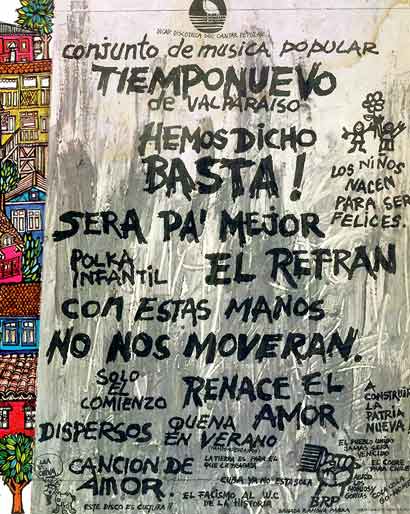 DICAP DISCOTECA DEL CANTAR POPULAR
conjunto de musica popular
TIEMPONUEVO
de VALPARAISO
HEMOS DICHO
BASTA!
LOS NIÑOS
NACEN
PARA SER
FELICES.
SERA PA' MEJOR
POLKA
INFANTIL
EL REFRAN
CON ESTAS MANOS
NO NOS MOVERAN.
SOLO
EL
COMIENZO
RENACE EL
AMOR
A
CONSTRUIR
LA
PATRIA
NUEVA!
DISPERSOS
QUENA
EN VERANO
CANCION DE
AMOR.
LA TIERRA ES PARA EL
QUE LA TRABAJA
CUBA YA NO ESTA SOLA
EL FACISMO AL W.C.
DE LA HISTORIA
ESTE DISCO ES CULTURA!!
EL PUEBLO UNIDO
JAMAS SERA
VENCIDO
EL COBRE
PARA CHILE
BRP
BRIGADA RAMONA PARRA